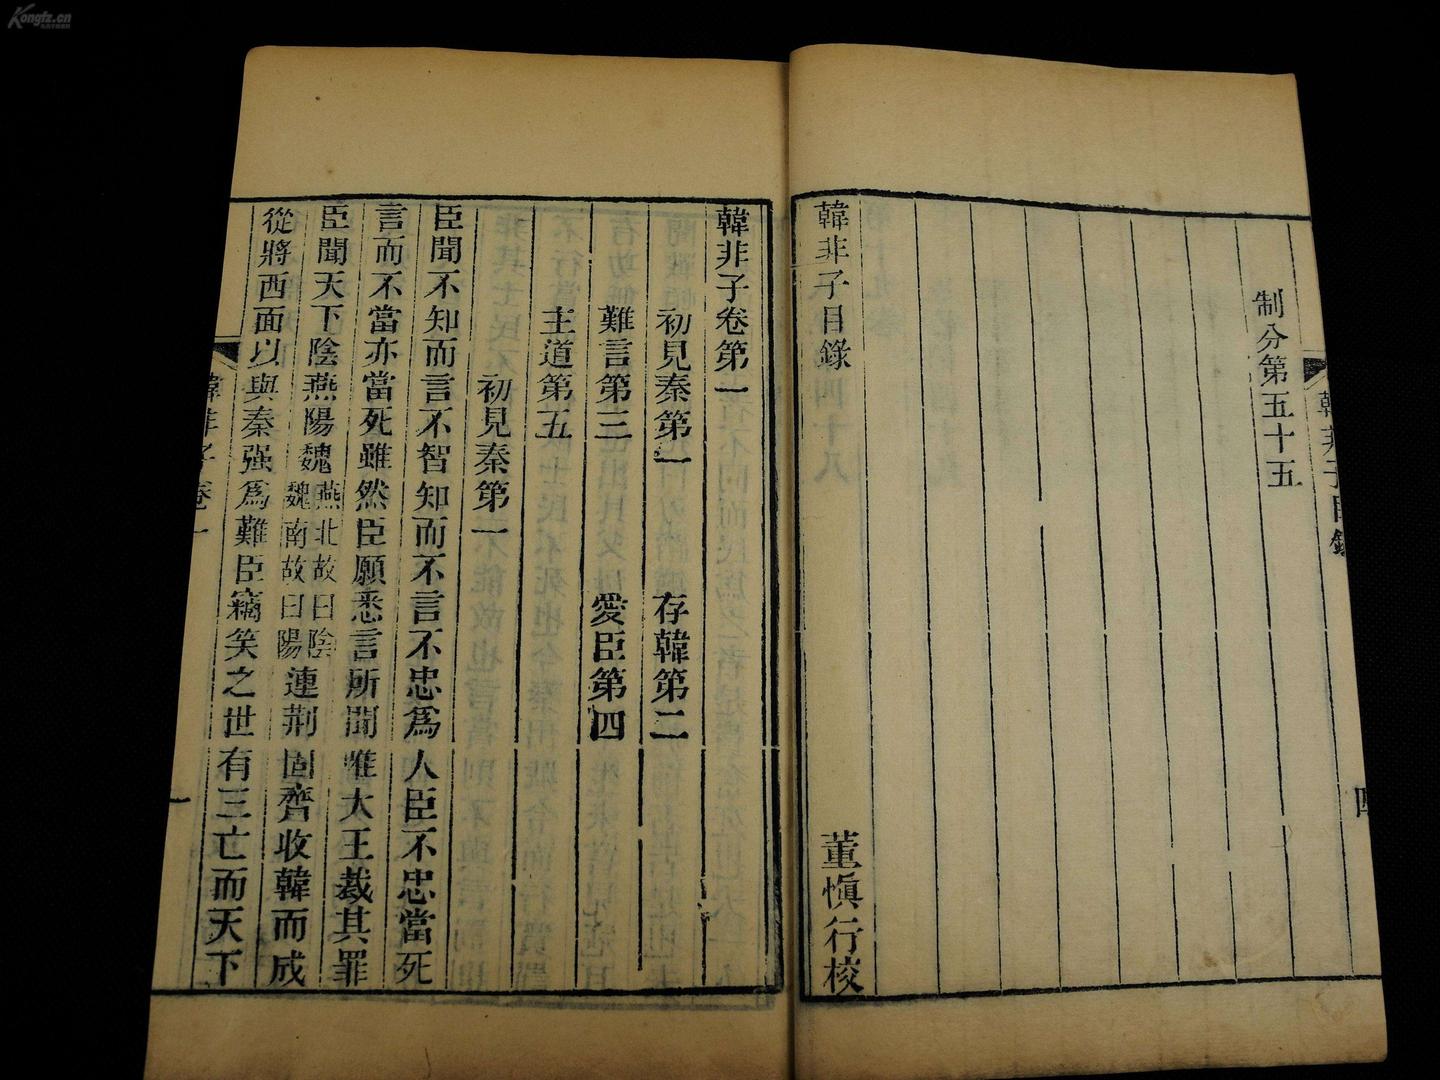 Kongfz.cn
制分第五十五
韓非子目錄
董慎行校
韓非子目錄
四
韓非子卷第一
初見秦第一　存韓第二
難言第三　愛臣第四
主道第五
初見秦第一
臣聞不知而言不智知而不言不忠爲人臣不忠當死
言而不當亦當死雖然臣願悉言所聞惟大王裁其罪
臣聞天下陰燕陽魏燕北故曰陰魏南故曰陽連荆固齊收韓而成
從將西面以與秦强爲難臣竊笑之世有三亡而天下
韓非子卷一
一